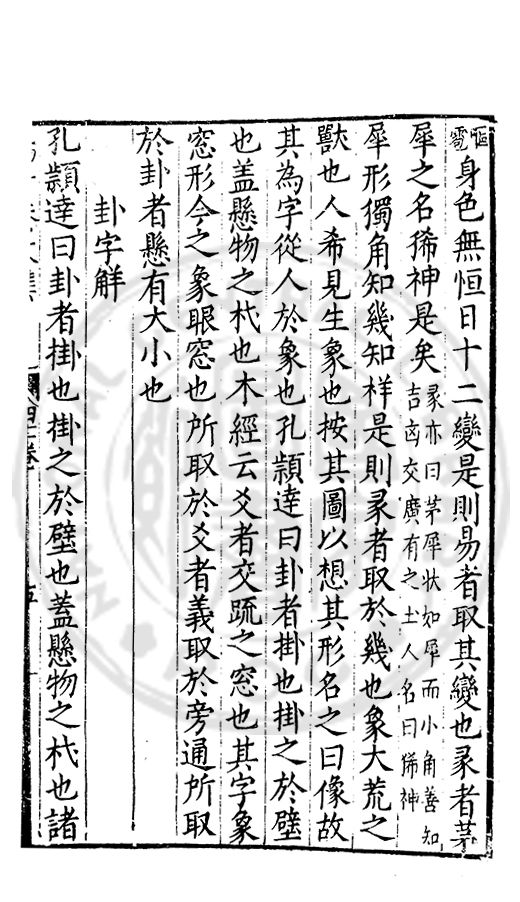 身色無恒日十二變是則易者取其變也彖者茅
犀之名狶神是矣彖亦曰茅犀狀如犀而小角善知
吉凶交廣有之土人名曰狶神
犀形獨角知幾知祥是則彖者取於幾也象大荒之
獸也人希見生象也按其圖以想其形名之曰像故
其為字從人於象也孔穎達曰卦者掛也掛之於壁
也盖懸物之杙也木經云爻者交疏之窓也其字象
窓形今之象眼窓也所取於爻者義取於旁通所取
於卦者懸有大小也
卦字解
孔穎達曰卦者掛也掛之於壁也蓋懸物之杙也諸